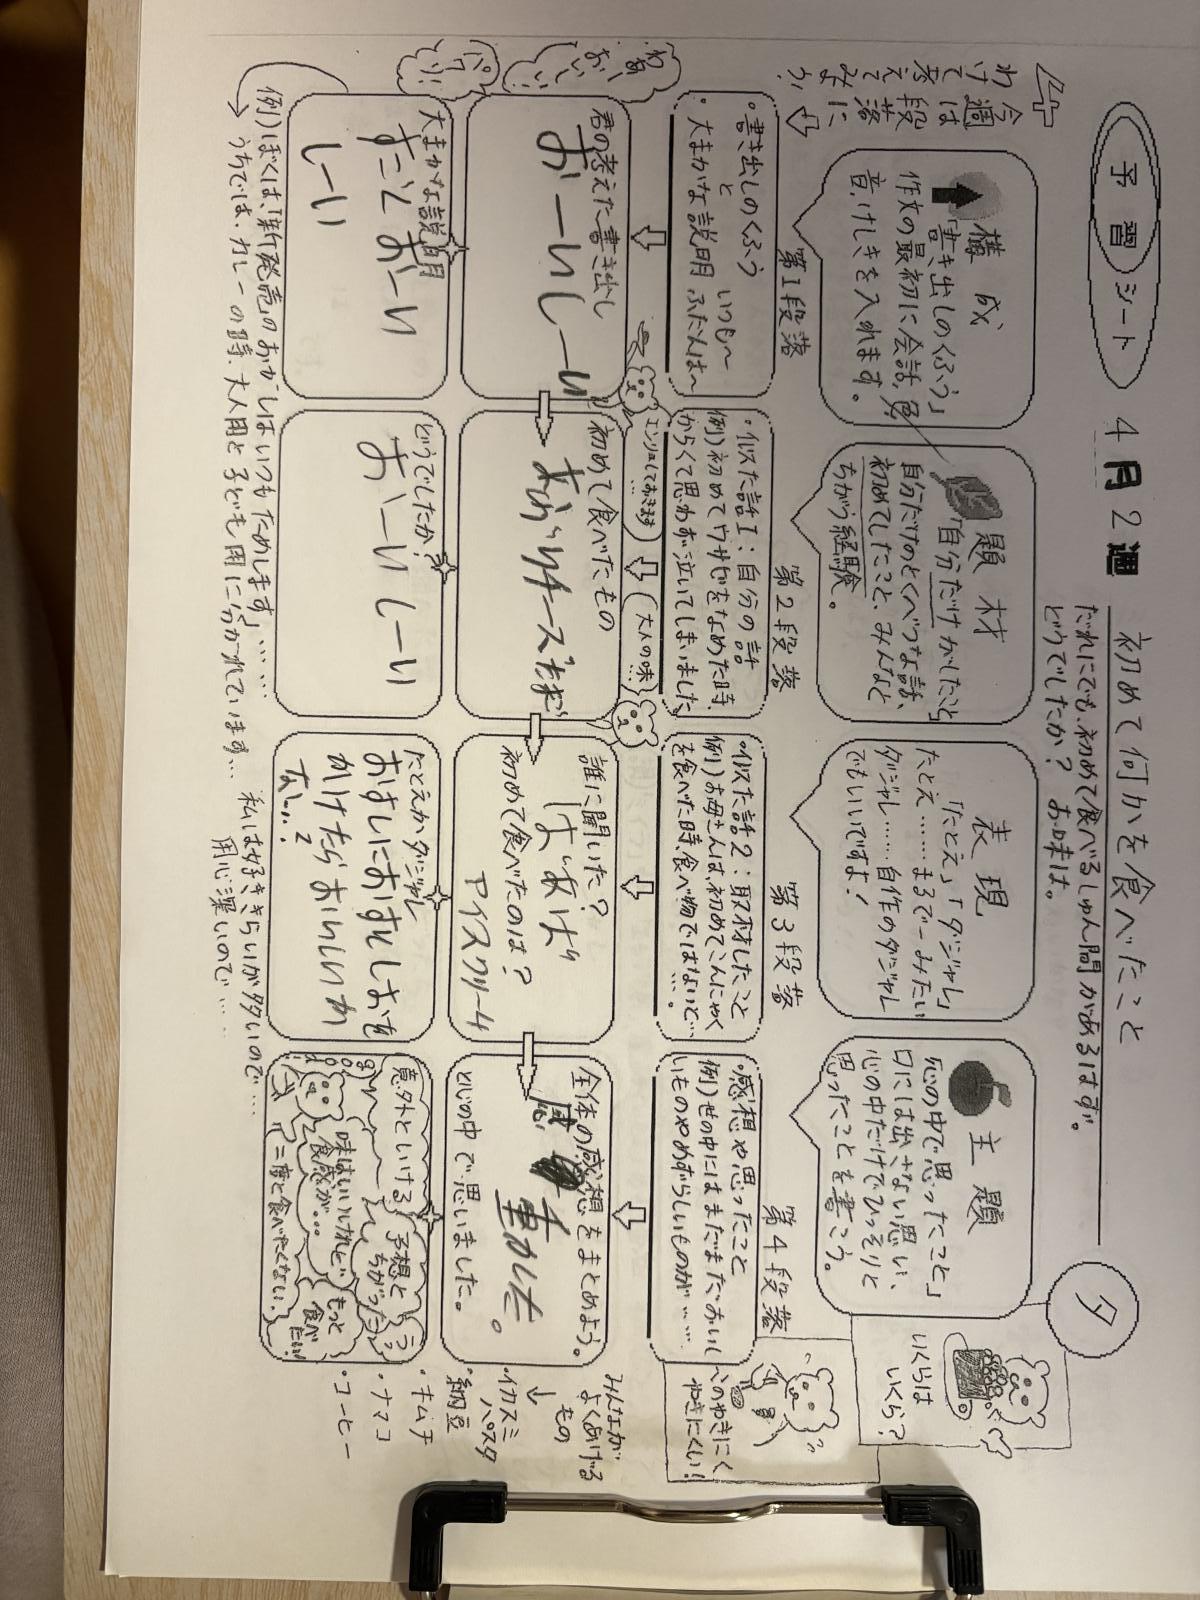 予習シート
4月2週
初めて何かを食べたこと
だれにでも、初めて食べるしゅん間があるはず。
どうでしたか？ お味は。
タ
いくらは
いくら？
今週は
段落に
わけて
考えて
みよう！
構成
「書き出しのくふう」
作文の最初に会話、色、
音、けしきを入れます。
題材
「自分だけがしたこと」
自分だけのとくべつな話、
初めてしたこと、みんなと
ちがう経験。
表現
「たとえ」「ダジャレ」
たとえ……まるで〜みたい
ダジャレ……自作のダジャレ
でもいいですよ！
主題
「心の中で思ったこと」
口には出さない思い、
心の中だけでひっそりと
思ったことを書こう。
第1段落
・書き出しのくふう
と
・大まかな説明
いつも〜
ふだんは〜
君の考えた書き出し
おーいしーい
大まかな説明
すごくおーい
しーい
第2段落
・似た話1：自分の話
例）初めてワサビをなめた時、
からくて思わず泣いてしまいました
エンリョしておきます…
大人の味…
初めて食べたもの
どうでしたか？
おーいしーい
第3段落
・似た話2：取材したこと
例）お母さんは、初めてこんにゃく
を食べた時、食べ物ではないと…
…。
誰に聞いた？
ばあば
初めて食べたのは？
アイスクリーム
たとえかダジャレ
おすしにおすしおを
かけたらおいしいか
な〜…？
第4段落
・感想や思ったこと
例）世の中にはまだまだおいし
いものやめずらしいものが……
このやきにく
やきにくい！
全体の感想をまとめよう。
感動した。
と心の中で思いました。
意外といける
予想と
ちがったっ
味はいいけれど
食感が…
もっと
食べ
たい！
二度と食べたくない
みんなが
よくあげる
もの
↓
・イカスミ
パスタ
・納豆
・キムチ
・ナマコ
・コーヒー
例）ぼくは、「新発売のおかしはいつもためします」……
うちでは、カレーの時、大人用と子ども用に分かれています…
私は好ききらいが多いので…
用心深いので……